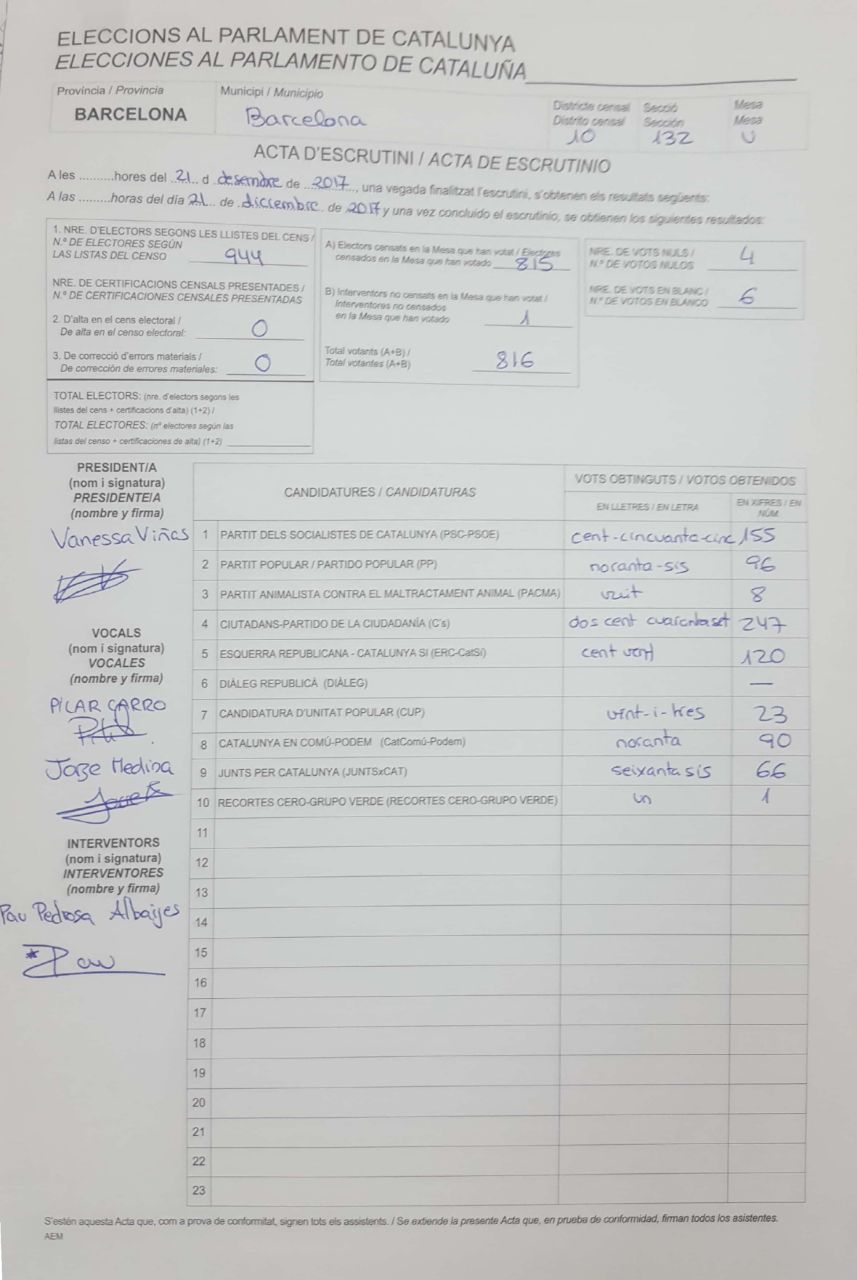 ELECCIONS AL PARLAMENT DE CATALUNYA
ELECCIONES AL PARLAMENTO DE CATALUÑA
Provincia / Provincia
BARCELONA
Municipi / Municipio
Barcelona
Districte censal Secció Mesa
Distrito censal Sección Mesa
10 132 U
ACTA D'ESCRUTINI / ACTA DE ESCRUTINIO
A les .........hores del .21.. d desembre de ..2017.., una vegada finalitzat l'escrutini, s'obtenen els resultats següents:
A las .........horas del día 21.. de diciembre. de 2017 y una vez concluido el escrutinio, se obtienen los siguientes resultados:
1. NRE. D'ELECTORS SEGONS LES LLISTES DEL CENS /
N.º DE ELECTORES SEGÚN
LAS LISTAS DEL CENSO 944
NRE. DE CERTIFICACIONS CENSALS PRESENTADES /
N.º DE CERTIFICACIONES CENSALES PRESENTADAS
2. D'alta en el cens electoral /
De alta en el censo electoral: 0
3. De correcció d'errors materials /
De corrección de errores materiales: 0
TOTAL ELECTORS: (nre. d'electors segons les
llistes del cens + certificacions d'alta) (1+2) /
TOTAL ELECTORES: (nº electores según las
listas del censo + certificaciones de alta) (1+2)
A) Electors censats en la Mesa que han votat / Electores
censados en la Mesa que han votado 815
B) Interventors no censats en la Mesa que han votat /
Interventores no censados
en la Mesa que han votado 1
Total votants (A+B) /
Total votantes (A+B) 816
NRE. DE VOTS NULS /
N.º DE VOTOS NULOS 4
NRE. DE VOTS EN BLANC /
N.º DE VOTOS EN BLANCO 6
PRESIDENT/A
(nom i signatura)
PRESIDENTE/A
(nombre y firma)
Vanessa Viñas
VOCALS
(nom i signatura)
VOCALES
(nombre y firma)
PILAR CARRO
Jorge Medina
INTERVENTORS
(nom i signatura)
INTERVENTORES
(nombre y firma)
Pau Pedrosa Albaijes
* Pau
CANDIDATURES / CANDIDATURAS
VOTS OBTINGUTS / VOTOS OBTENIDOS
EN LLETRES / EN LETRA
EN XIFRES / EN
NÚM.
1 PARTIT DELS SOCIALISTES DE CATALUNYA (PSC-PSOE) cent-cincuanta-cinc 155
2 PARTIT POPULAR / PARTIDO POPULAR (PP) noranta-sis 96
3 PARTIT ANIMALISTA CONTRA EL MALTRACTAMENT ANIMAL (PACMA) vuit 8
4 CIUTADANS-PARTIDO DE LA CIUDADANÍA (C's) dos cent cuarentaset 247
5 ESQUERRA REPUBLICANA - CATALUNYA SI (ERC-CatSí) cent vint 120
6 DIÀLEG REPUBLICÀ (DIÀLEG) —
7 CANDIDATURA D'UNITAT POPULAR (CUP) vint-i-tres 23
8 CATALUNYA EN COMÚ-PODEM (CatComú-Podem) noranta 90
9 JUNTS PER CATALUNYA (JUNTSxCAT) seixanta sis 66
10 RECORTES CERO-GRUPO VERDE (RECORTES CERO-GRUPO VERDE) un 1
11
12
13
14
15
16
17
18
19
20
21
22
23
S'estén aquesta Acta que, com a prova de conformitat, signen tots els assistents. / Se extiende la presente Acta que, en prueba de conformidad, firman todos los asistentes.
AEM